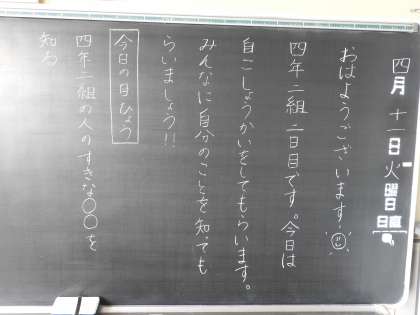 四月十一日火曜日
日直
おはようございます!
四年二組二日目です。今日は
自こしょうかいをしてもらいます。
みんなに自分のことを知っても
らいましょう!!
今日の目ひょう
四年二組の人のすきな〇〇を
知ろう